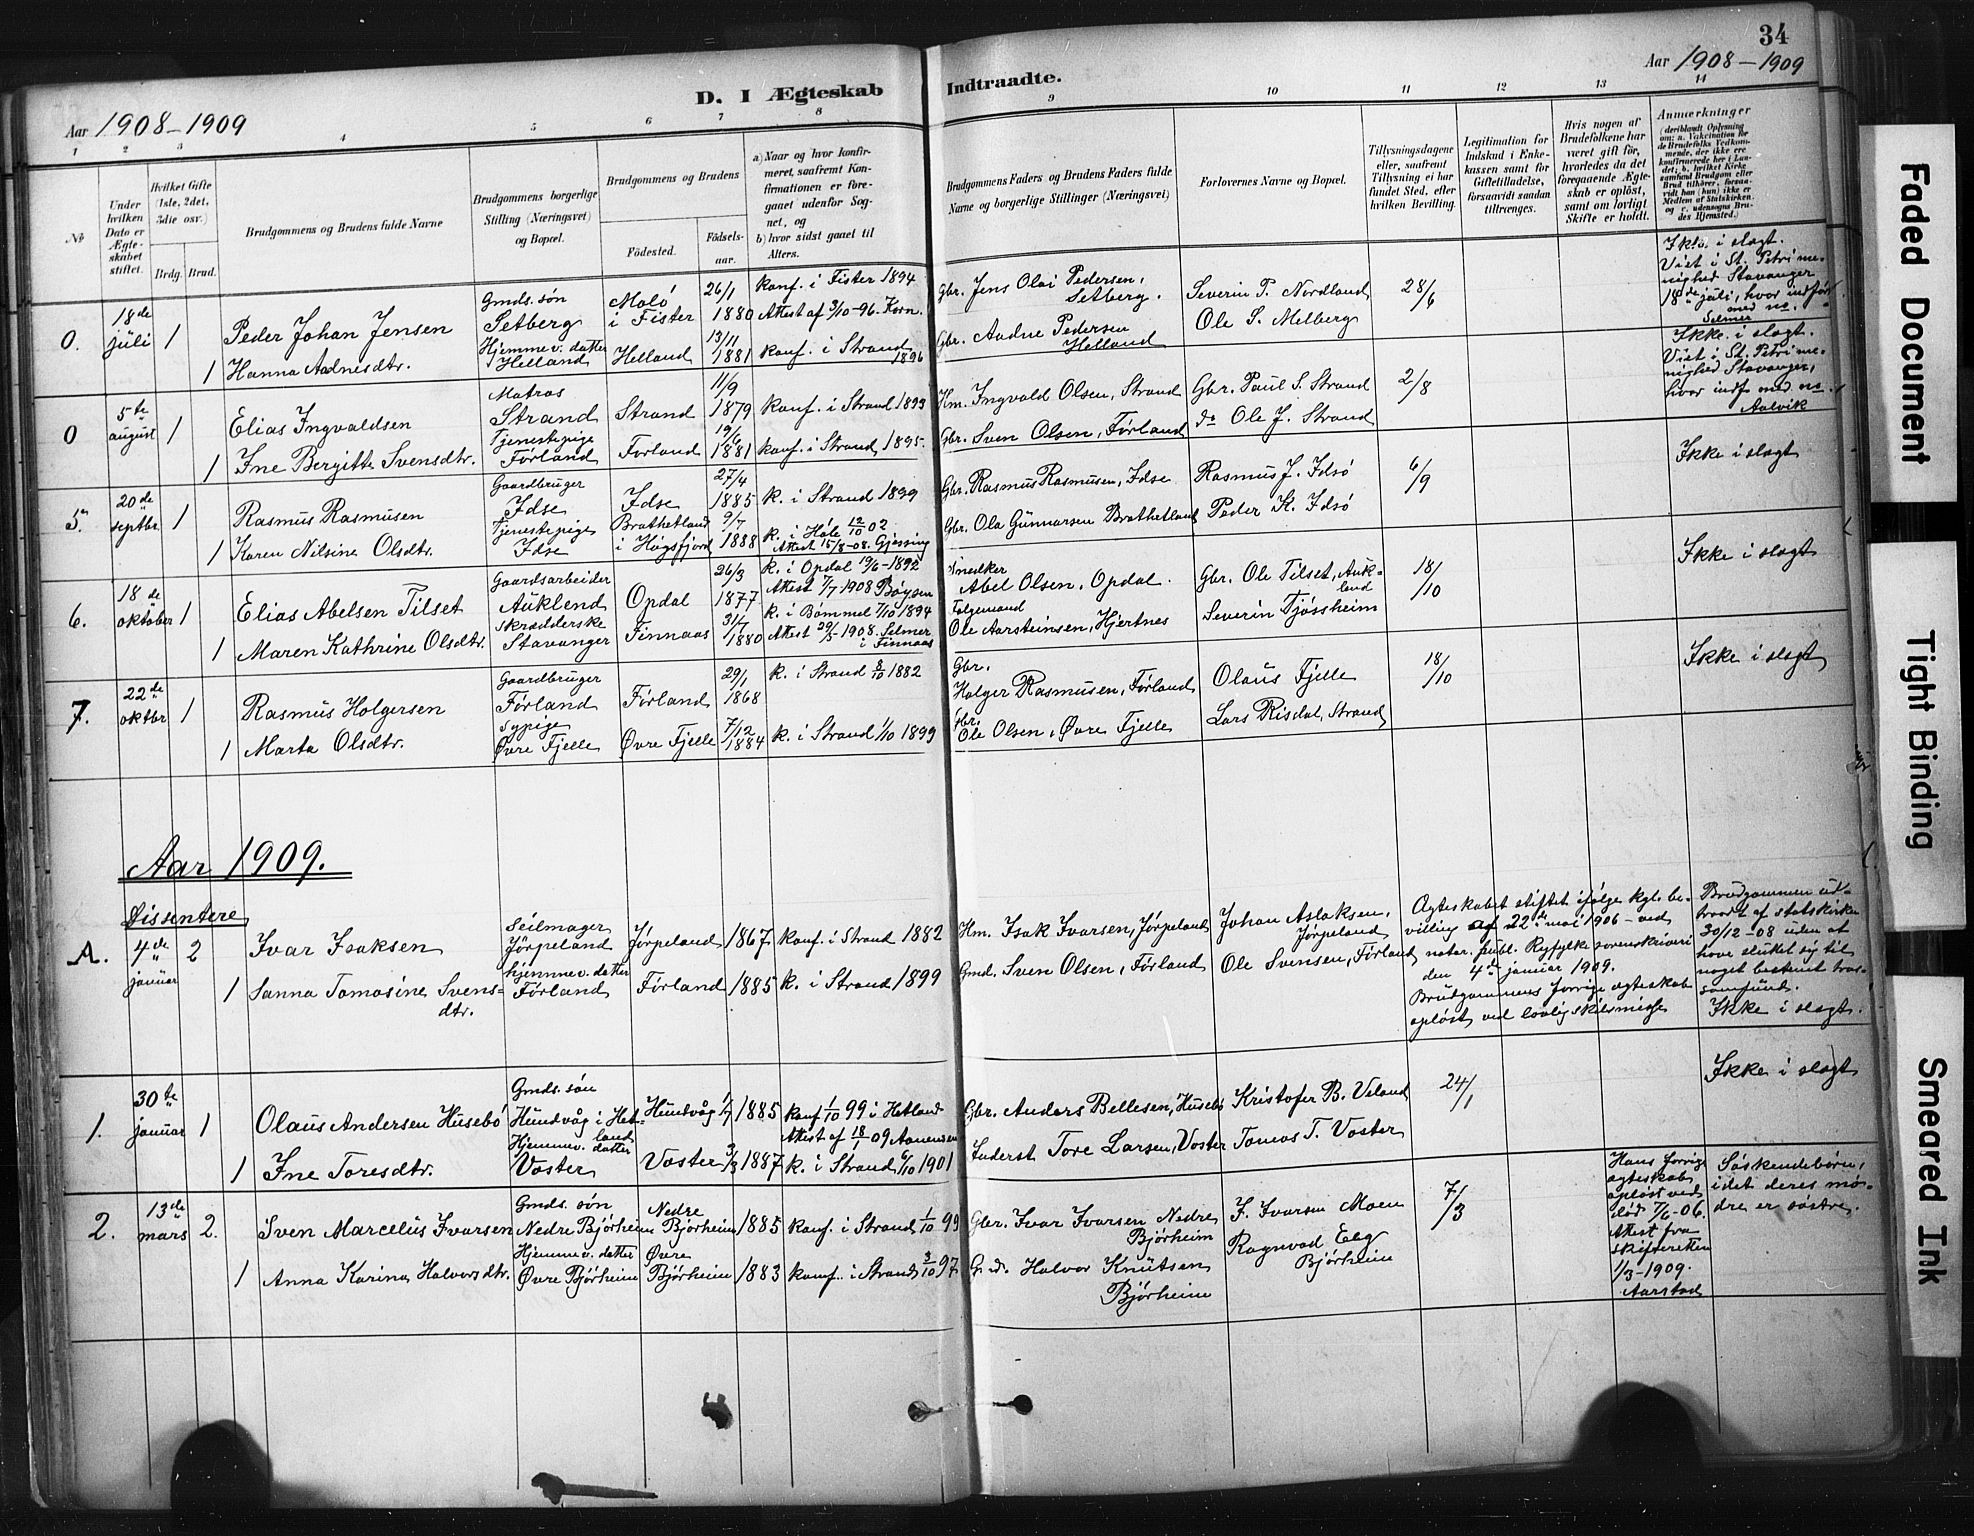 34
Aar 1908-1909
Aar 1908-1909
D. I Ægteskab
Indtraadte.
1 2 3 4 5 6 7 8
9 10 11 12 13 14
No
Under hvilken Dato er Ægteskabet stiftet.
Hvilket Gifte (1ste, 2det, 3die osv.)
Brdg. Brud.
Brudgommens og Brudens fulde Navne
Brudgommens borgerlige Stilling (Næringsvei) og Bopæl.
Brudgommens og Brudens
Fødested.
Fødselsaar.
a) Naar og hvor konfirmeret, saafremt Konfirmationen er foregaaet udenfor Sognet, og
b) hvor sidst gaaet til Alters.
Brudgommens Faders og Brudens Faders fulde Navne og borgerlige Stillinger (Næringsvei)
Forlovernes Navne og Bopæl.
Tillysningsdagene eller, saafremt Tillysning ei har fundet Sted, efter hvilken Bevilling.
Legitimation for Indskud i Enkekassen samt for Giftetilladelse, forsaavidt saadan tiltrænges.
Hvis nogen af Brudefolkene har været gift før, hvorledes da det foregaaende Ægteskab er opløst, samt om lovligt Skifte er holdt.
Anmærkninger
(deriblandt Oplysning om: a. Vakcination for de Brudefolks Vedkommende, der ikke ere konfirmerede her i Landet; b. hvilket Kirkesamfund Brudgom eller Brud tilhører, forsaavidt han (hun) ikke er Medlem af Statskirken, og c. udensogns Brudes Hjemsted.)
0. 18de juli 1 Peder Johan Jensen
Gmds. søn Setberg
Molö i Fister
26/1 1880
konf. i Fister 1894
Attest af 3/10-96. Korn.
Gbr. Jens Olai Pedersen, Setberg.
Severin P. Nordland
Ole S. Melberg
28/6
Ikke i slagt.
Viet i St. Petri menighed Stavanger
18de juli, hvor indført med no.
Selmer
1 Hanna Aadnesdtr.
Hjemmev. datter Helland
Helland
13/11 1881
konf. i Strand 1896
Gbr. Aadne Pedersen Helland
0 5te august 1 Elias Ingvaldsen
Matros Strand
Strand
11/9 1879
konf. i Strand 1893
Hm. Ingvald Olsen, Strand
Gbr. Paul S. Strand
do Ole J. Strand
2/8
Ikke i slagt.
Viet i St. Petri menighed Stavanger,
hvor indf. med no.
Aalvik
1 Ine Bergitte Svensdtr.
Tjenestepige Förland
Forland
19/6 1881
konf. i Strand 1895.
Gbr. Sven Olsen, Förland
5. 20de septbr 1 Rasmus Rasmusen
Gaardbruger Idse
Idse
27/4 1885
k. i Strand 1899
Gbr. Rasmus Rasmusen, Idse
Rasmus J. Idsö
Peder K. Idsö
6/9
Ikke i slagt
1 Karen Nilsine Olsdtr.
Tjenestepige Idse
Brathetland i Høgsfjord
9/7 1888
k. i Hole 12/10 02
Attest 15/8-08. Gjessing
Gbr. Ola Gunnarsen Brathetland
6. 18de oktober 1 Elias Abelsen Tilset
Gaardsarbeider Auklend
Opdal
26/3 1877
k. i Opdal 19/6-1892
Attest 7/7 1908 Böysen
Snedker Abel Olsen, Opdal.
Gbr. Ole Tilset, Aukland
Severin Tjössheim
18/10
Ikke i slagt
1 Maren Kathrine Olsdtr.
skrædderske Stavanger
Finnaas
31/7 1880
k. i Bömmel 7/10 1894
Attest 29/5-1908. Selmer i Finnaas
Ole Aarsteinsen, Hjertnes
7. 22de oktbr 1 Rasmus Holgersen
Gaardbruger Förland
Förland
29/1 1868
k. i Strand 8/10 1882
Gbr. Holger Rasmusen, Förland
Olaus Fjelle
Lars Risdal, Strand
18/10
Ikke i slagt
1 Marta Olsdtr.
sypige Øvre Fjelle
Øvre Fjelle
7/12 1884
k. i Strand 1/10 1899
Gbr. Ole Olsen, Øvre Fjelle
Aar 1909.
Dissentere
A. 4de januar 2 Ivar Isaksen
Seilmager Jörpeland
Jörpeland
1867
konf. i Strand 1882
Hm. Isak Ivarsen, Jörpeland
Johan Aslaksen, Jörpeland
Ole Svensen, Förland
Ægteskabet stiftet ifølge kgl. bevilling af 22de mai 1906 - ved
notar. publ. Ryfylke sorenskriveri
den 4de januar 1909.
Brudgommens forrige ægteskab
opløst ved lovlig skilsmisse
Brudgommen udtraadt af statskirke
30/12-08 uden at
have sluttet sig til
noget bestemt trossamfund.
Ikke i slagt.
1 Sanna Tomasine Svensdtr.
hjemmev. datter Förland
Förland
1885
k. i Strand 1899
Gmd. Sven Olsen, Förland
1. 30te januar 1 Olaus Andersen Husebö
Gmds. søn Hundvåg i Hetland
Hundvåg 1/7
1885
konf 1/10 99 i Hetland
Attest af 18/1 09 Aanensen
Gbr. Anders Bellesen, Husebö
Kristofer B. Veland
Tomas T. Voster
24/1
Ikke i slagt
1 Ine Toresdtr.
Hjemmev. datter Voster
Voster 3/3
1887
k. i Strand 6/10 1901
Inderst Tore Larsen, Voster
2. 13de mars 2. Sven Marcelius Ivarsen
Gmds. søn Nedre Björheim
Nedre Björheim
1885
konf. i Strand 1/10 99
Gbr. Ivar Ivarsen Nedre Björheim
I. Ivarsen Moen
Ragnvad Eeg Björheim
7/3
Hans forrige
ægteskab
opløst ved
död 7/6-06.
Attest fra
skifteretten
1/3-1909.
Aarstad
Söskendebörn,
idet deres mødre er søstre.
1 Anna Karina Halvorsdtr.
Hjemmev. datter Øvre Björheim
Øvre Björheim
1883
konf. i Strand 3/10 97
Gmd. Halvor Knutsen Björheim
Faded Document
Tight Binding
Smeared Ink